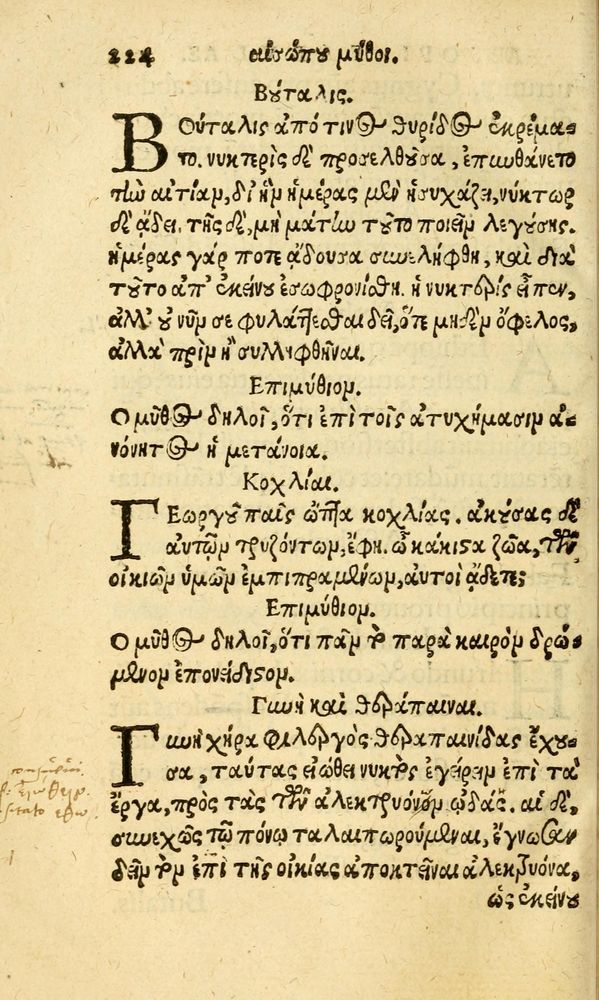 224 αἰσώπου μῦθοι.
Βούταλις.
Βούταλις ἀπό τινος θυρίδος ἐκρέμα-
το. νυκτερὶς δὲ προσελθοῦσα, ἐπυνθάνετο
τὴν αἰτίαν, δι' ἣν ἡμέρας μὲν ἡσυχάζει, νύκτωρ
δὲ ᾄδει. τῆς δὲ, μὴ μάτην τοῦτο ποιεῖν λεγούσης.
ἡμέρας γάρ ποτε ᾄδουσα συνελήφθη, καὶ διὰ
τοῦτο ἀπ' ἐκείνου ἐσωφρονίσθη. ἡ νυκτερίς εἶπεν,
ἀλλ' οὐ νῦν σε φυλάττεσθαι δεῖ, ὅτε μηδὲν ὄφελος,
ἀλλὰ πρὶν ἢ συλληφθῆναι.
Επιμύθιον.
Ο μῦθος δηλοῖ, ὅτι ἐπὶ τοῖς ἀτυχήμασιν ἀ-
νόνητος ἡ μετάνοια.
Κοχλίαι.
Γεωργοῦ παῖς ὤπτα κοχλίας. ἀκούσας δὲ
αὐτῶν τρυζόντων, ἔφη. ὦ κάκιστα ζῶα, τῶν
οἰκιῶν ὑμῶν ἐμπιπραμένων, αὐτοὶ ᾄδετε;
Επιμύθιον.
Ο μῦθος δηλοῖ, ὅτι πᾶν τὸ παρὰ καιρὸν δρώ-
μενον ἐπονείδιστον.
Γυνὴ καὶ θεράπαιναι.
Γυνὴ χήρα φιλεργὸς θεραπαινίδας ἔχου-
σα, ταύτας εἰώθει νυκτὸς ἐγείρειν ἐπὶ τὰ
ἔργα, πρὸς τὰς τῶν ἀλεκτρυόνων ᾠδάς. αἱ δὲ,
συνεχῶς τῷ πόνῳ ταλαιπωρούμεναι, ἔγνωσαν
δεῖν τὸν ἐπὶ τῆς οἰκίας ἀποκτεῖναι ἀλεκτρυόνα,
ὡς ἐκείνου